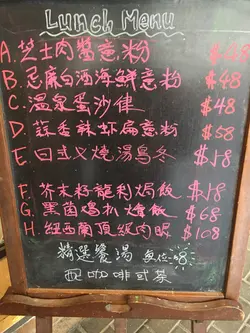 Lunch Menu
A. 芝士肉醬意粉 $48
B. 忌廉白酒海鮮意粉 $48
C. 溫泉蛋沙律 $48
D. 蒜香辣虾扁意粉 $58
E. 日式叉燒湯烏冬 $58
F. 芥末籽龍利焗飯 $58
G. 黑菌鸡扒燴飯 $68
H. 紐西蘭頂級肉眼 $108
精選餐湯 每位
配咖啡或茶